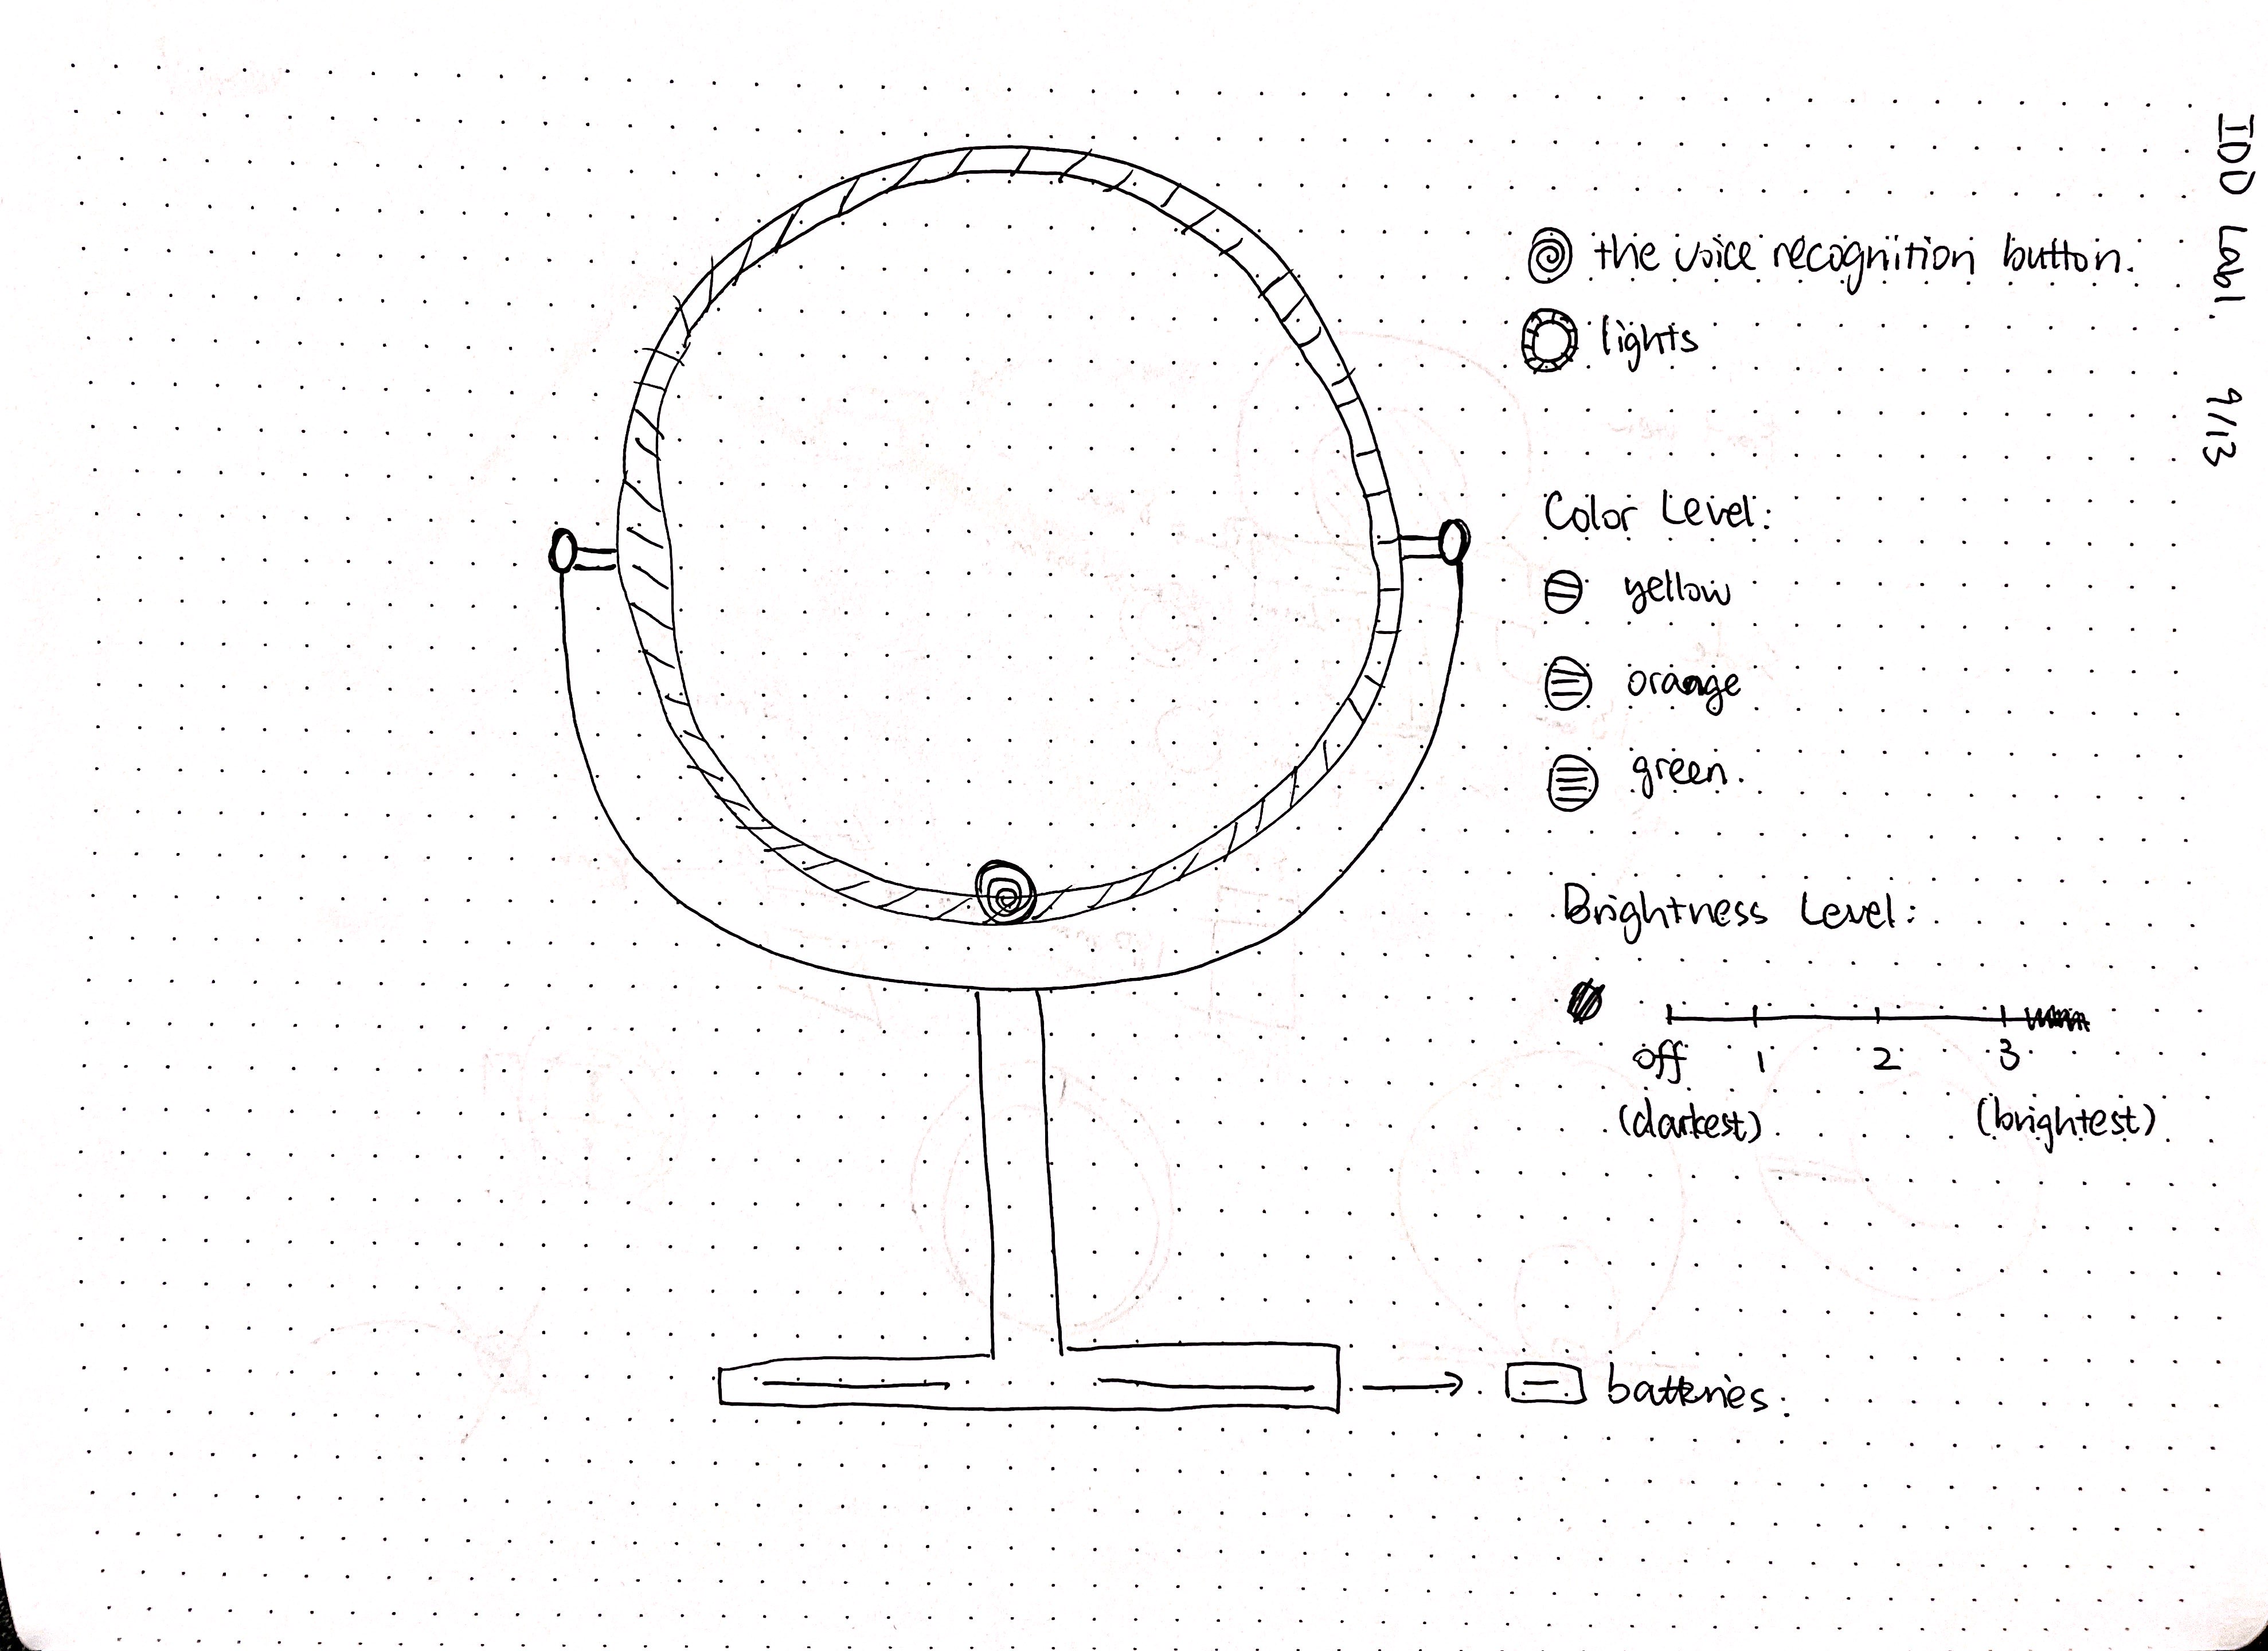 IDD Lab1. 9/13
the voice recognition button.
lights
Color Level:
yellow
orange
green.
Brightness Level:
off 1 2 3
(darkest) (brightest)
batteries.